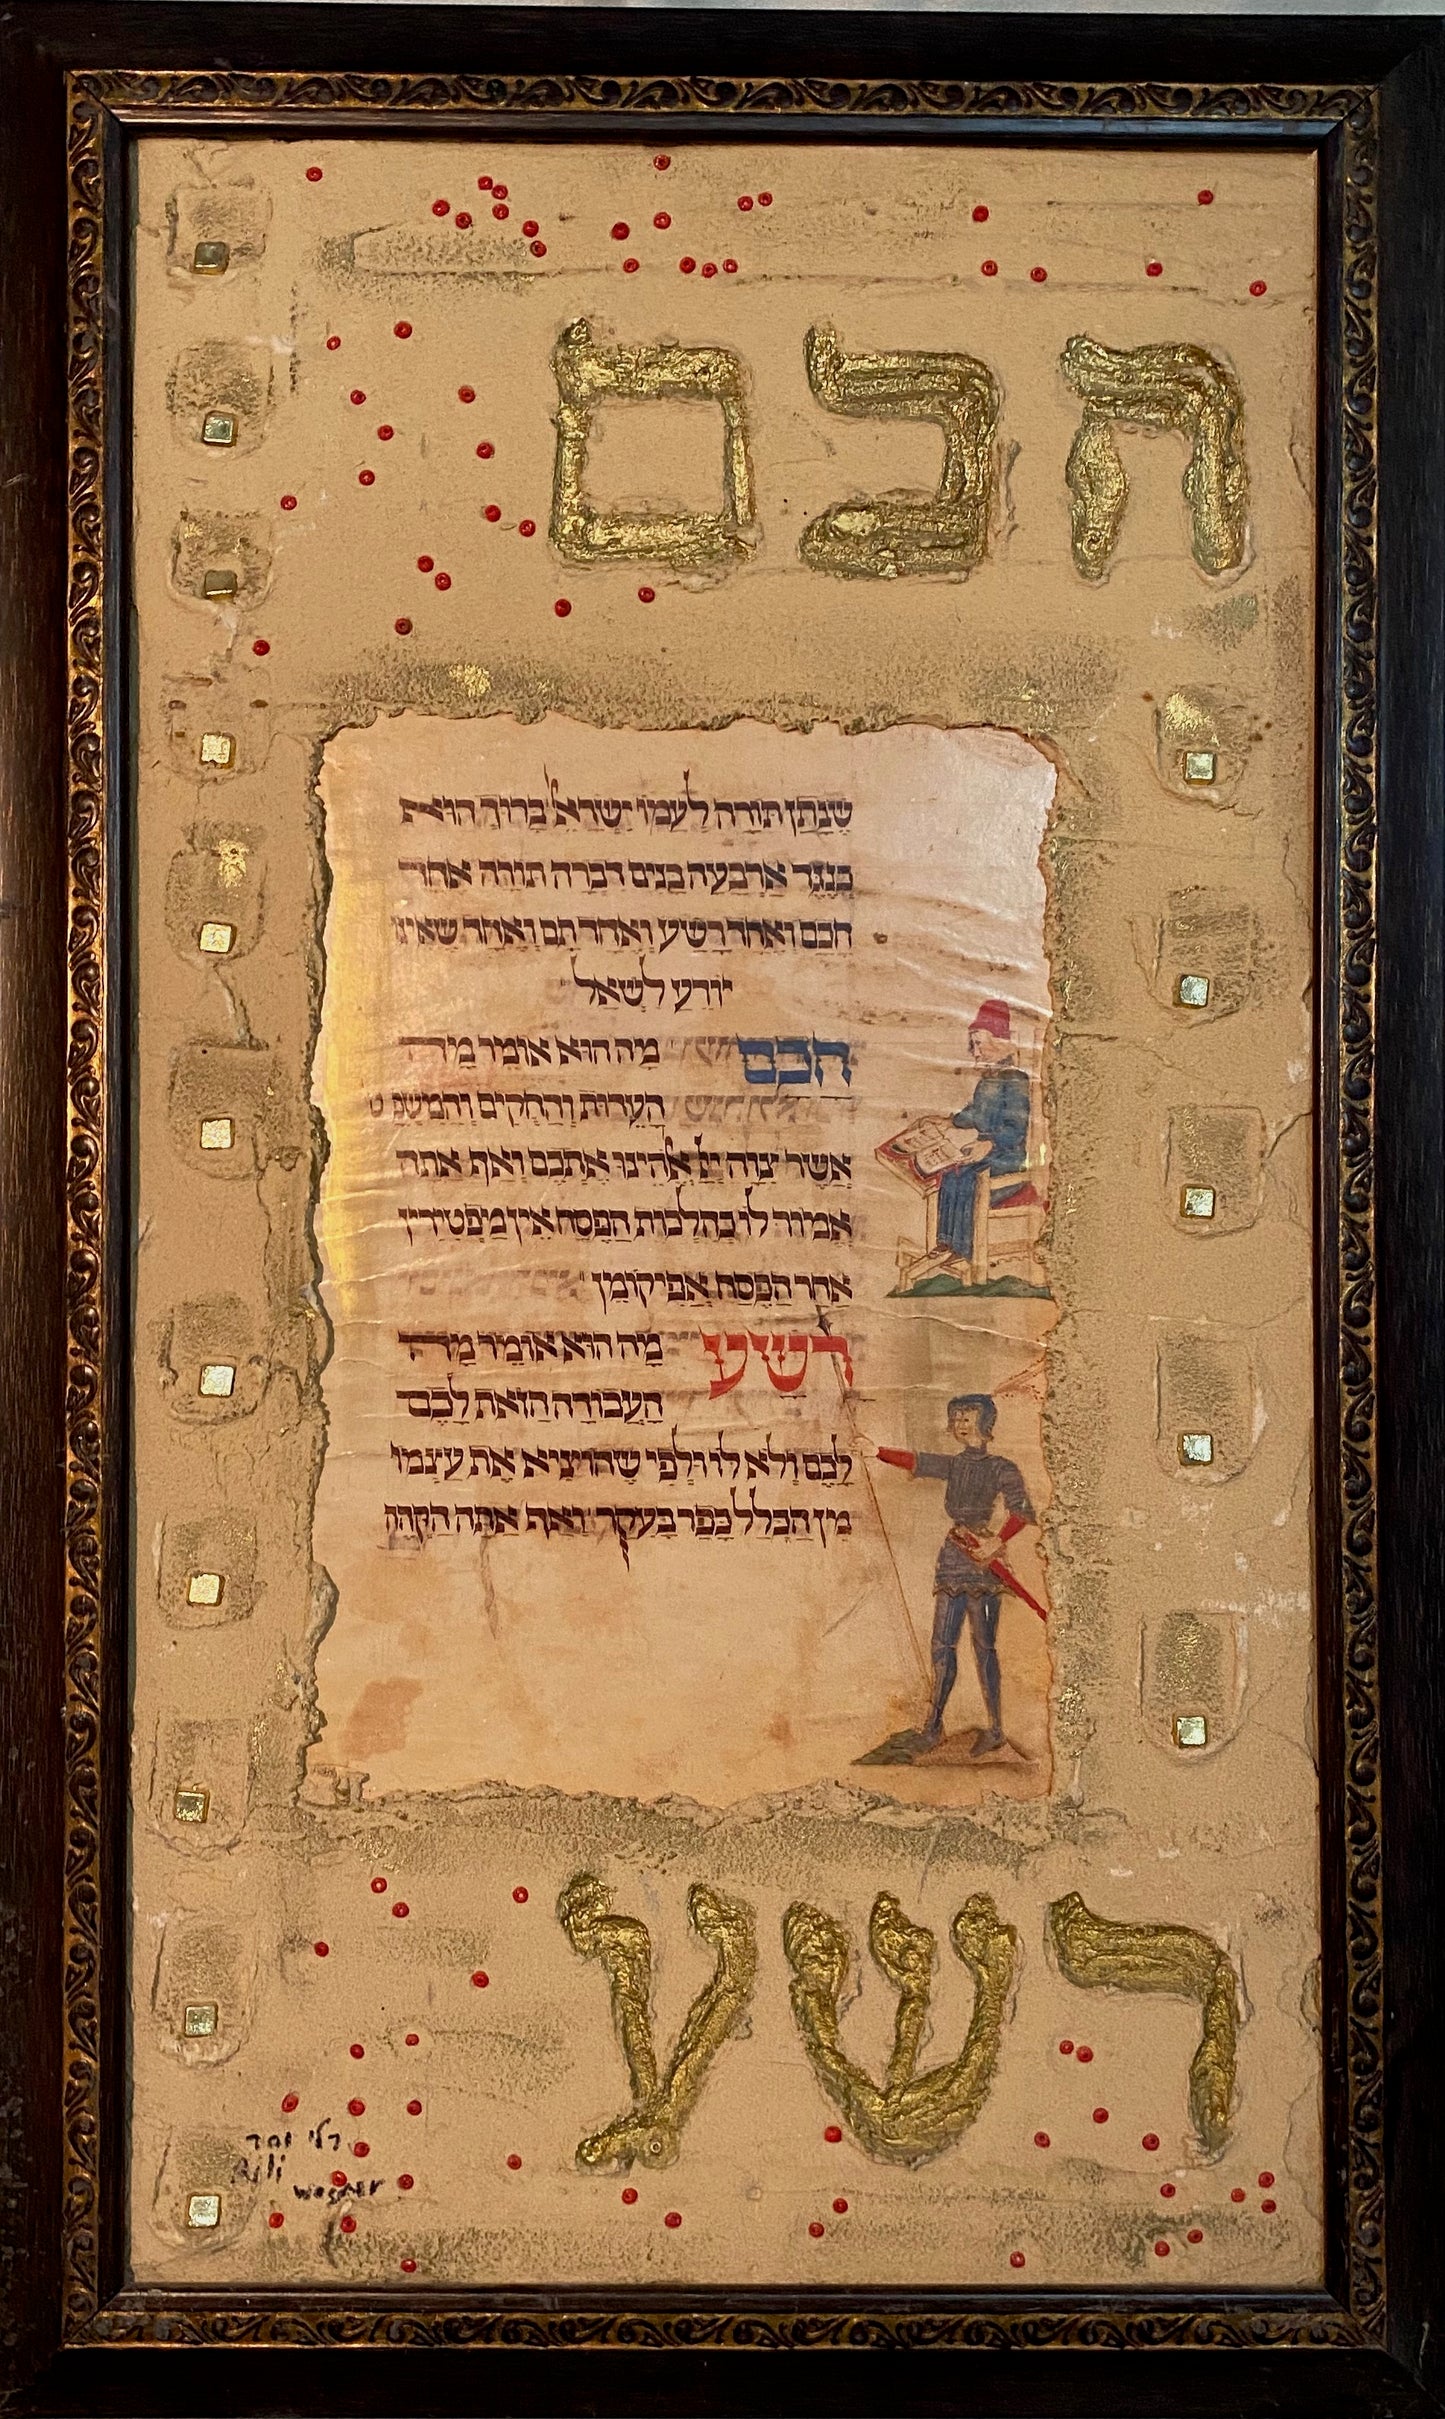 חכם
שנתן תורה לעמו ישראל ברוך הוא
כנגד ארבעה בנים דברה תורה אחד
חכם ואחד רשע ואחד תם ואחד שאינו
יודע לשאל
חכם מה הוא אומר מה
העדות והחקים והמשפט
אשר צוה יי אלהינו אתכם ואף אתה
אמור לו כהלכות הפסח אין מפטירין
אחר הפסח אפיקומן
רשע מה הוא אומר מה
העבודה הזאת לכם
לכם ולא לו ולפי שהוציא את עצמו
מן הכלל כפר בעקר ואף אתה הקהה
רשע
רלי וגנר
Rili
wagner